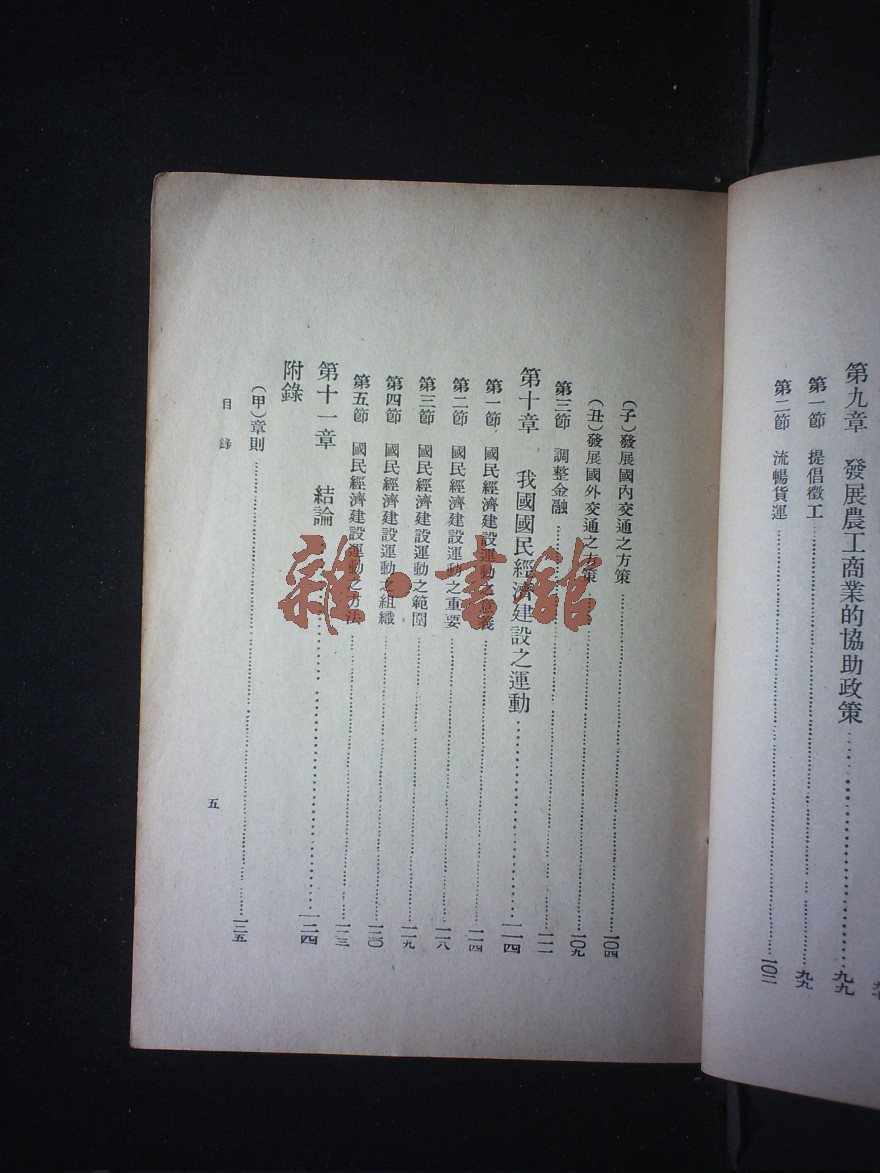 第九章 發展農工商業的協助政策……九九
第一節 提倡徵工……九九
第二節 流暢貨運……一〇二
(子)發展國內交通之方策……一〇四
(丑)發展國外交通之方策……一〇九
第三節 調整金融……
第十章 我國國民經濟建設之運動……一一四
第一節 國民經濟建設運動之意義……一一四
第二節 國民經濟建設運動之重要……一一八
第三節 國民經濟建設運動之範圍……一一九
第四節 國民經濟建設運動之組織……一二〇
第五節 國民經濟建設運動之方法……一二三
第十一章 結論……一二四
附錄
(甲)章則……一三五
目錄
五
雜·書館